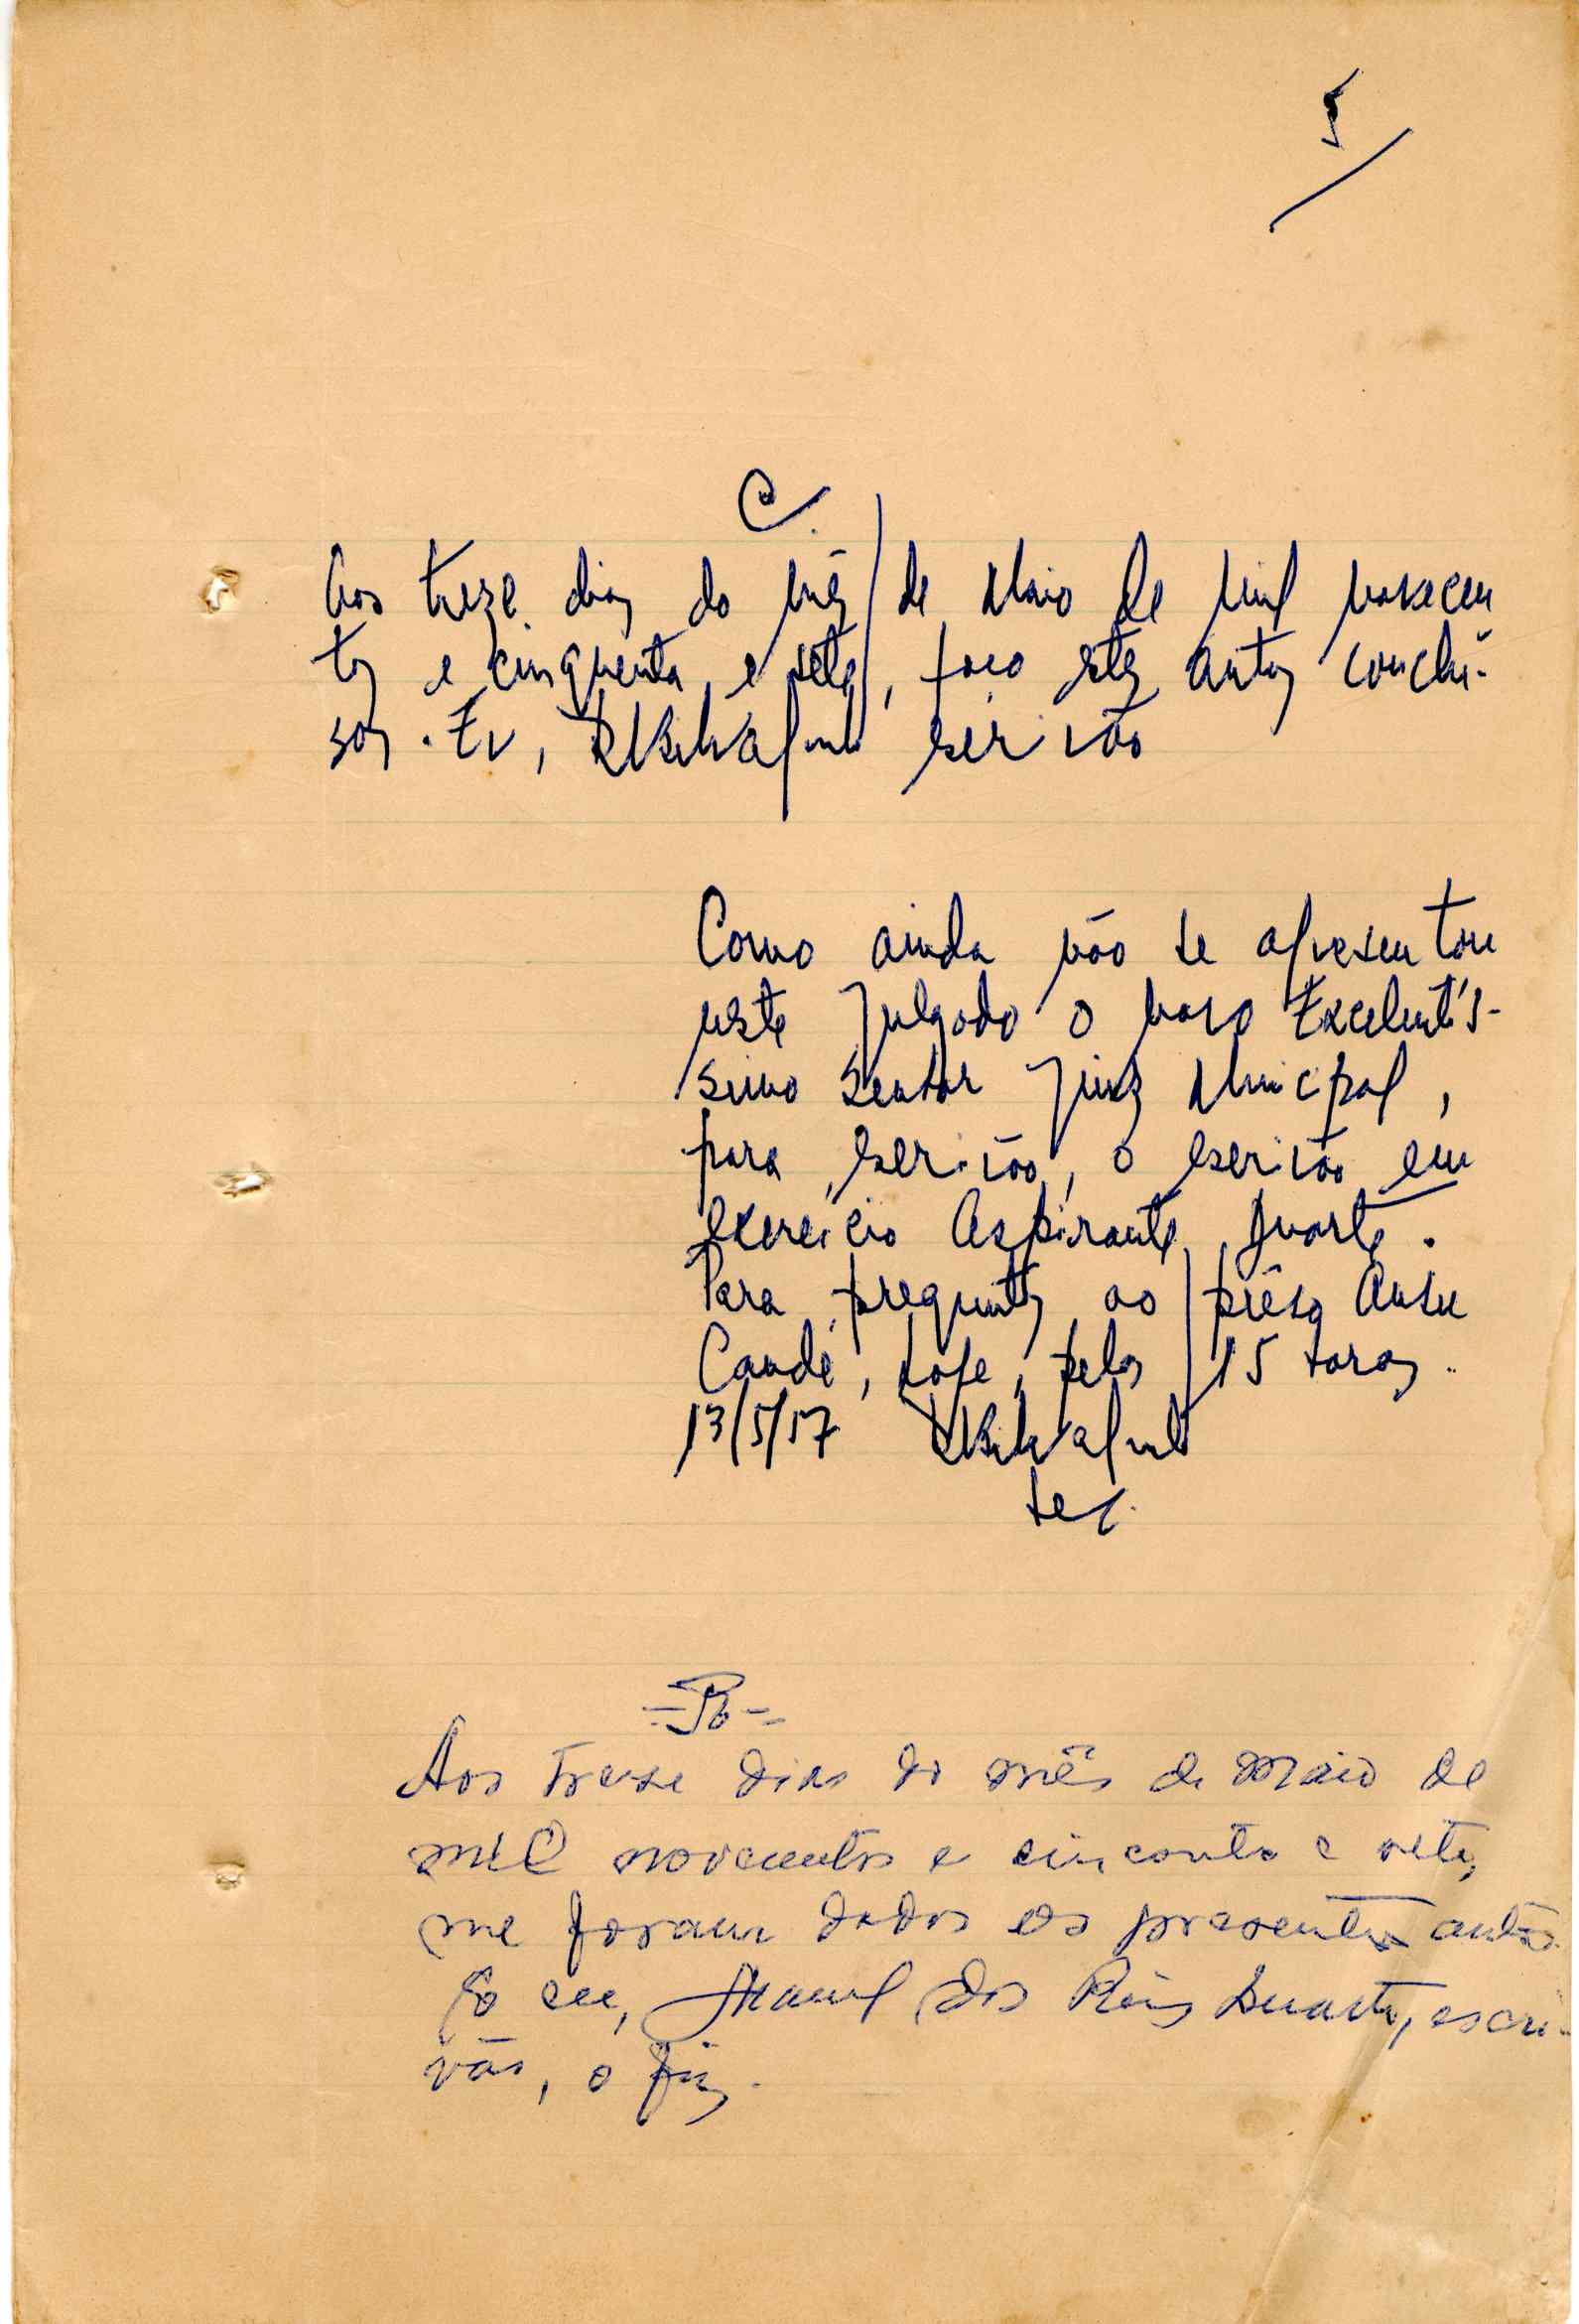 5
C.
Aos treze dias do mês de Maio de mil novecen
tos e cinquenta e sete, faço estes autos conclu-
sos. Eu, escrivão
Como ainda não se apresentou
neste Julgado o novo Excelentís-
simo Senhor Juiz Municipal,
para escrivão, o escrivão em
exercício Aspirante Duarte.
Para preguntas ao prêso Ansu
Candé, hoje, pelas 15 horas.
13/5/57
=Rb=
Aos treze dias do mês de Maio de
mil novecentos e cinconta e sete,
me foram dados os presentes autos.
E eu, Manuel dos Reis Duarte, escri-
vão, o fiz.